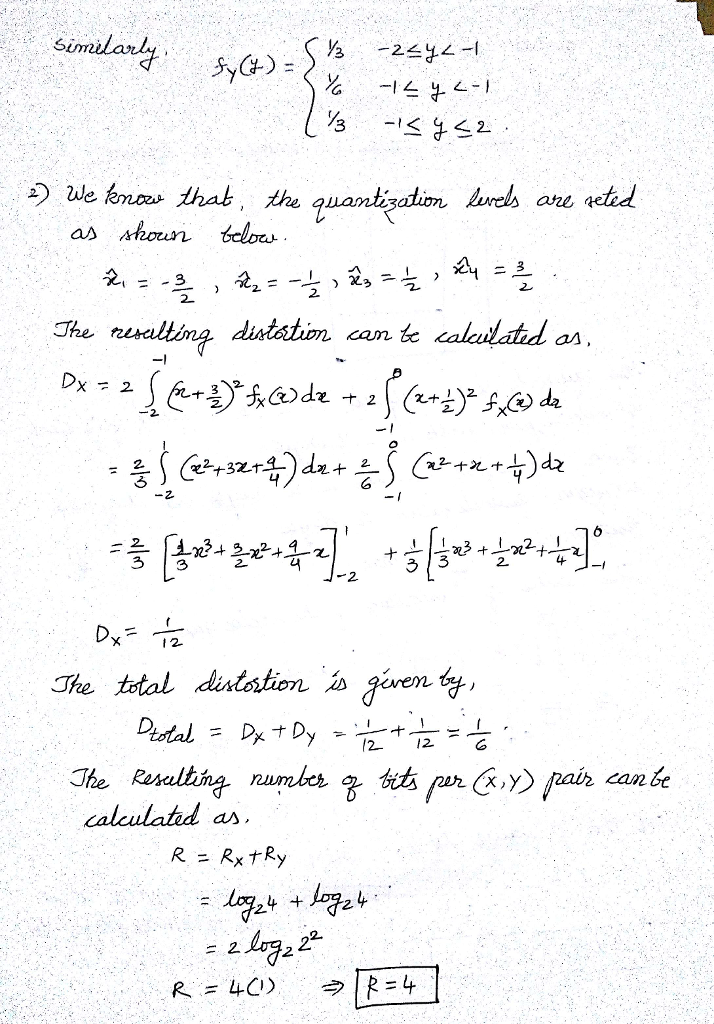 similarly, f_y(y) = { 1/3 -2≤y<-1
1/6 -1≤ y <-1
1/3 -1≤ y ≤2.
2) We know that, the quantization levels are seted
as shown below.
x̂₁ = -3/2 , x̂₂ = -1/2 , x̂₃ = 1/2 , x̂₄ = 3/2 .
The resulting distortion can be calculated as,
Dx = 2 ∫_{-2}^{-1} (x+3/2)² f_x(x) dx + 2 ∫_{-1}^{0} (x+1/2)² f_x(x) dx
= 2/3 ∫_{-2}^{1} (x²+3x+9/4) dx + 2/6 ∫_{-1}^{0} (x²+x+1/4) dx
= 2/3 [1/3 x³ + 3/2 x² + 9/4 x]_{-2}^{1} + 1/3 [1/3 x³ + 1/2 x² + 1/4 x]_{-1}^{0}
Dx = 1/12
The total distortion is given by,
Dtotal = Dx + Dy = 1/12 + 1/12 = 1/6 .
The Resulting number of bits per (x,y) pair can be
calculated as.
R = Rx + Ry
= log₂4 + log₂4
= 2 log₂ 2²
R = 4(1) ⇒ R = 4